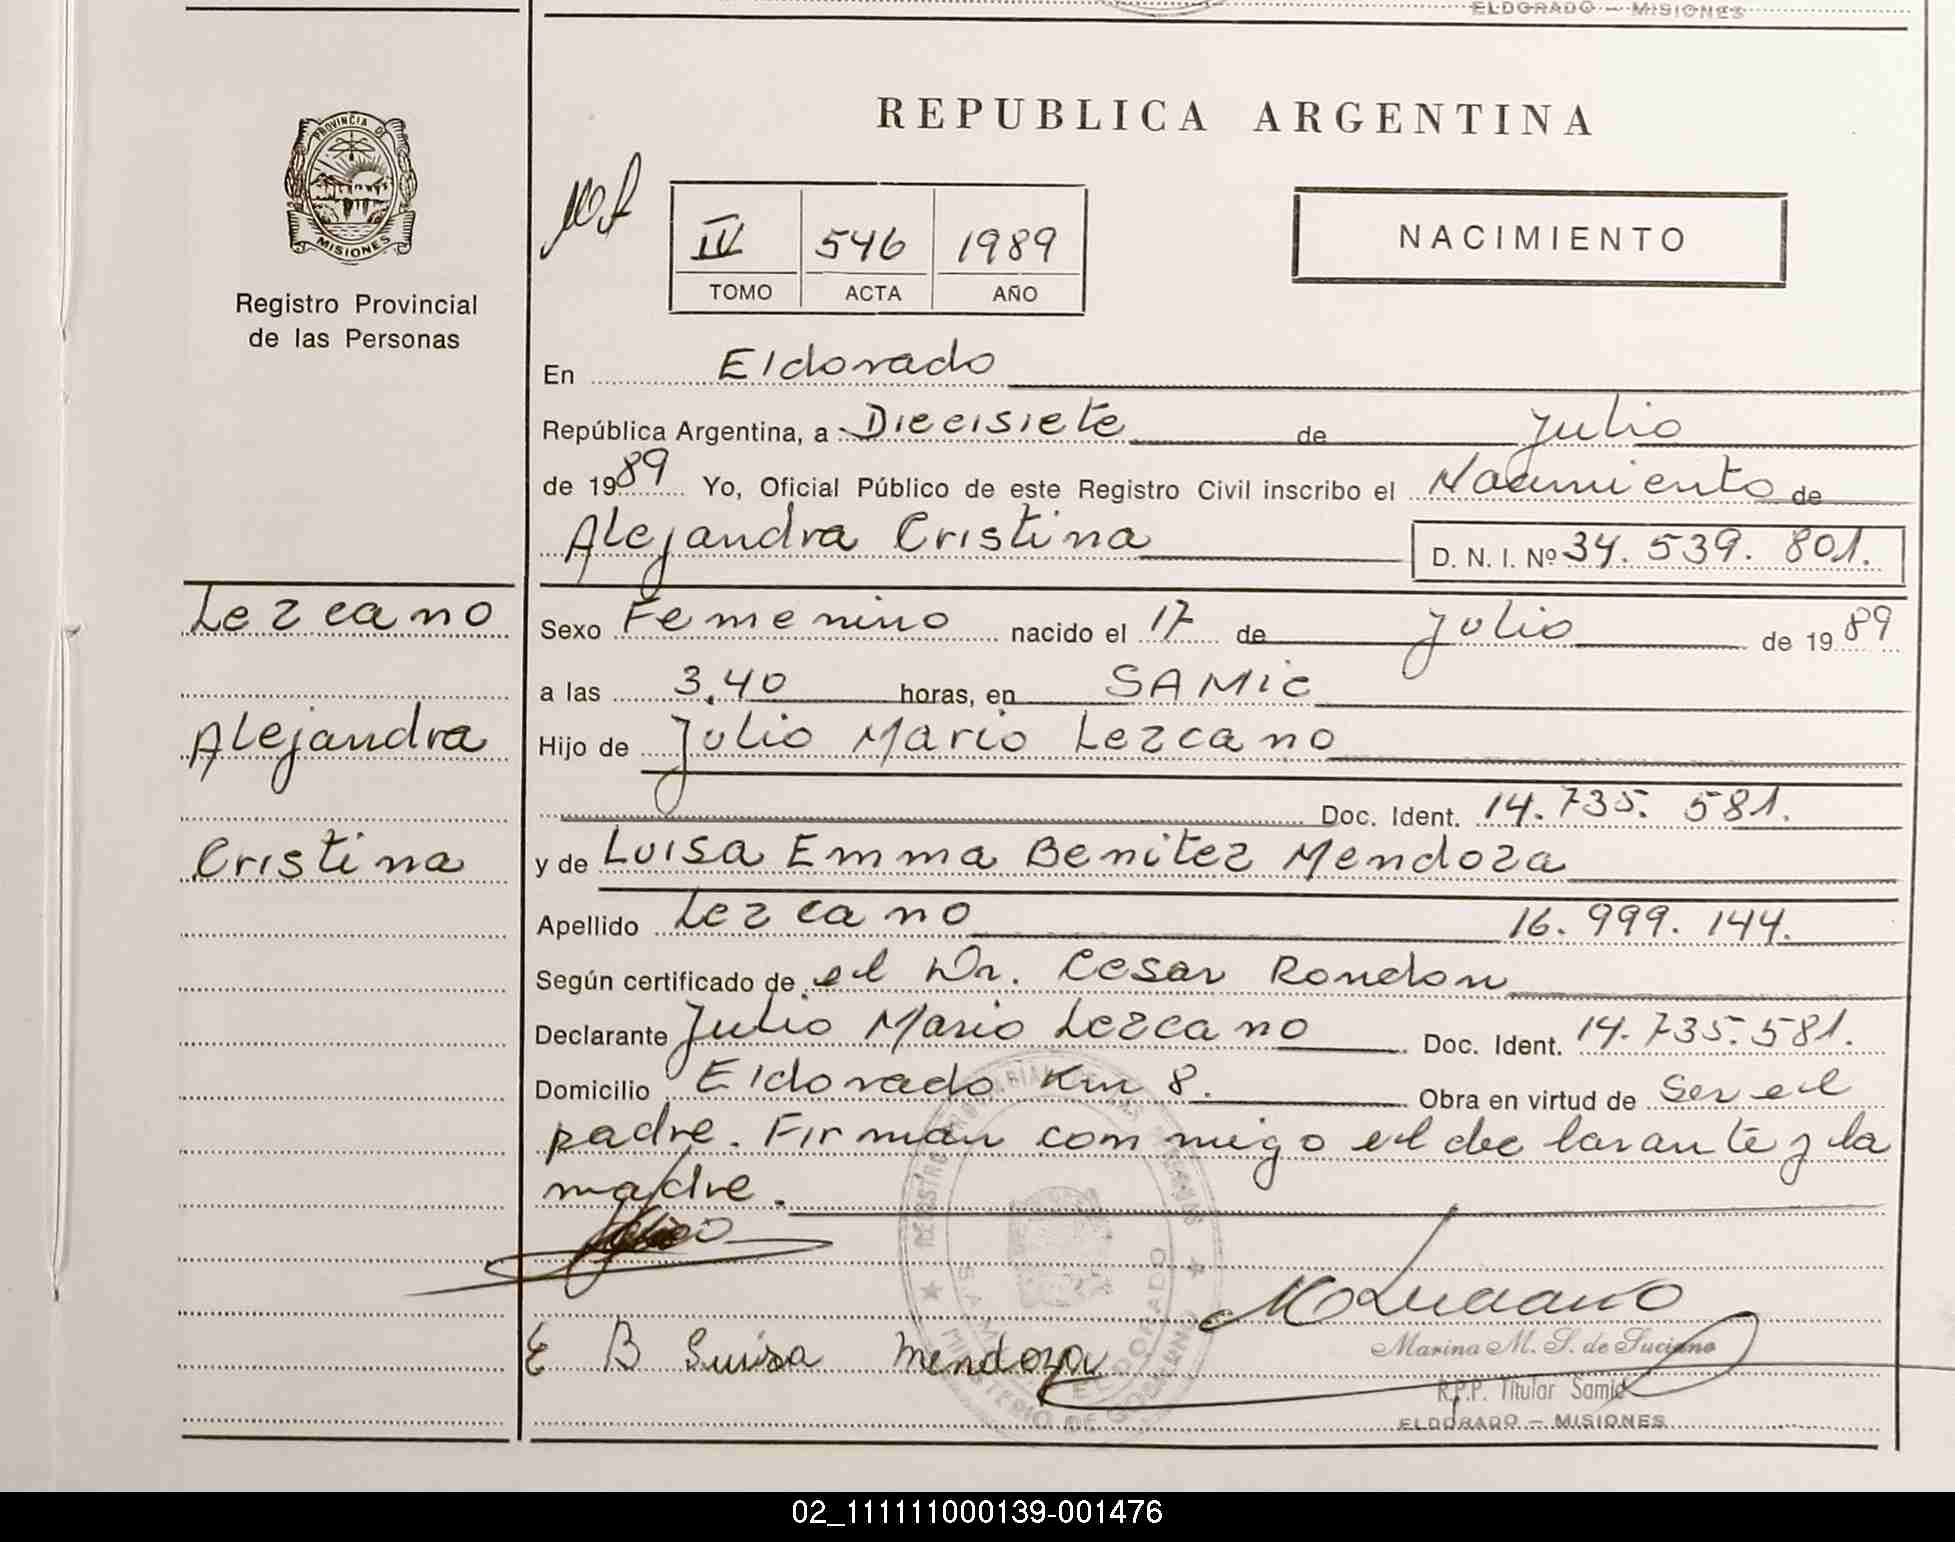 ELDORADO — MISIONES
REPUBLICA ARGENTINA
PROVINCIA DE
MISIONES
Registro Provincial
de las Personas
IV 546 1989
TOMO ACTA AÑO
NACIMIENTO
En Eldorado
República Argentina, a Diecisiete de Julio
de 1989 Yo, Oficial Público de este Registro Civil inscribo el Nacimiento de
Alejandra Cristina D. N. I. Nº 34. 539. 801.
Lezcano
Alejandra
Cristina
Sexo Femenino nacido el 17 de Julio de 1989
a las 3,40 horas, en SAMic
Hijo de Julio Mario Lezcano
Doc. Ident. 14. 735. 581.
y de Luisa Emma Benitez Mendoza
Apellido Lezcano 16. 999. 144.
Según certificado de el Dr. Cesar Rondon
Declarante Julio Mario Lezcano Doc. Ident. 14. 735. 581.
Domicilio Eldorado Km 8. Obra en virtud de Ser el
padre. Firman conmigo el declarante y la
madre.
E B Luisa Mendoza
Marina M. S. de Luciano
R.P.P. Titular Samic
ELDORADO — MISIONES
02_111111000139-001476